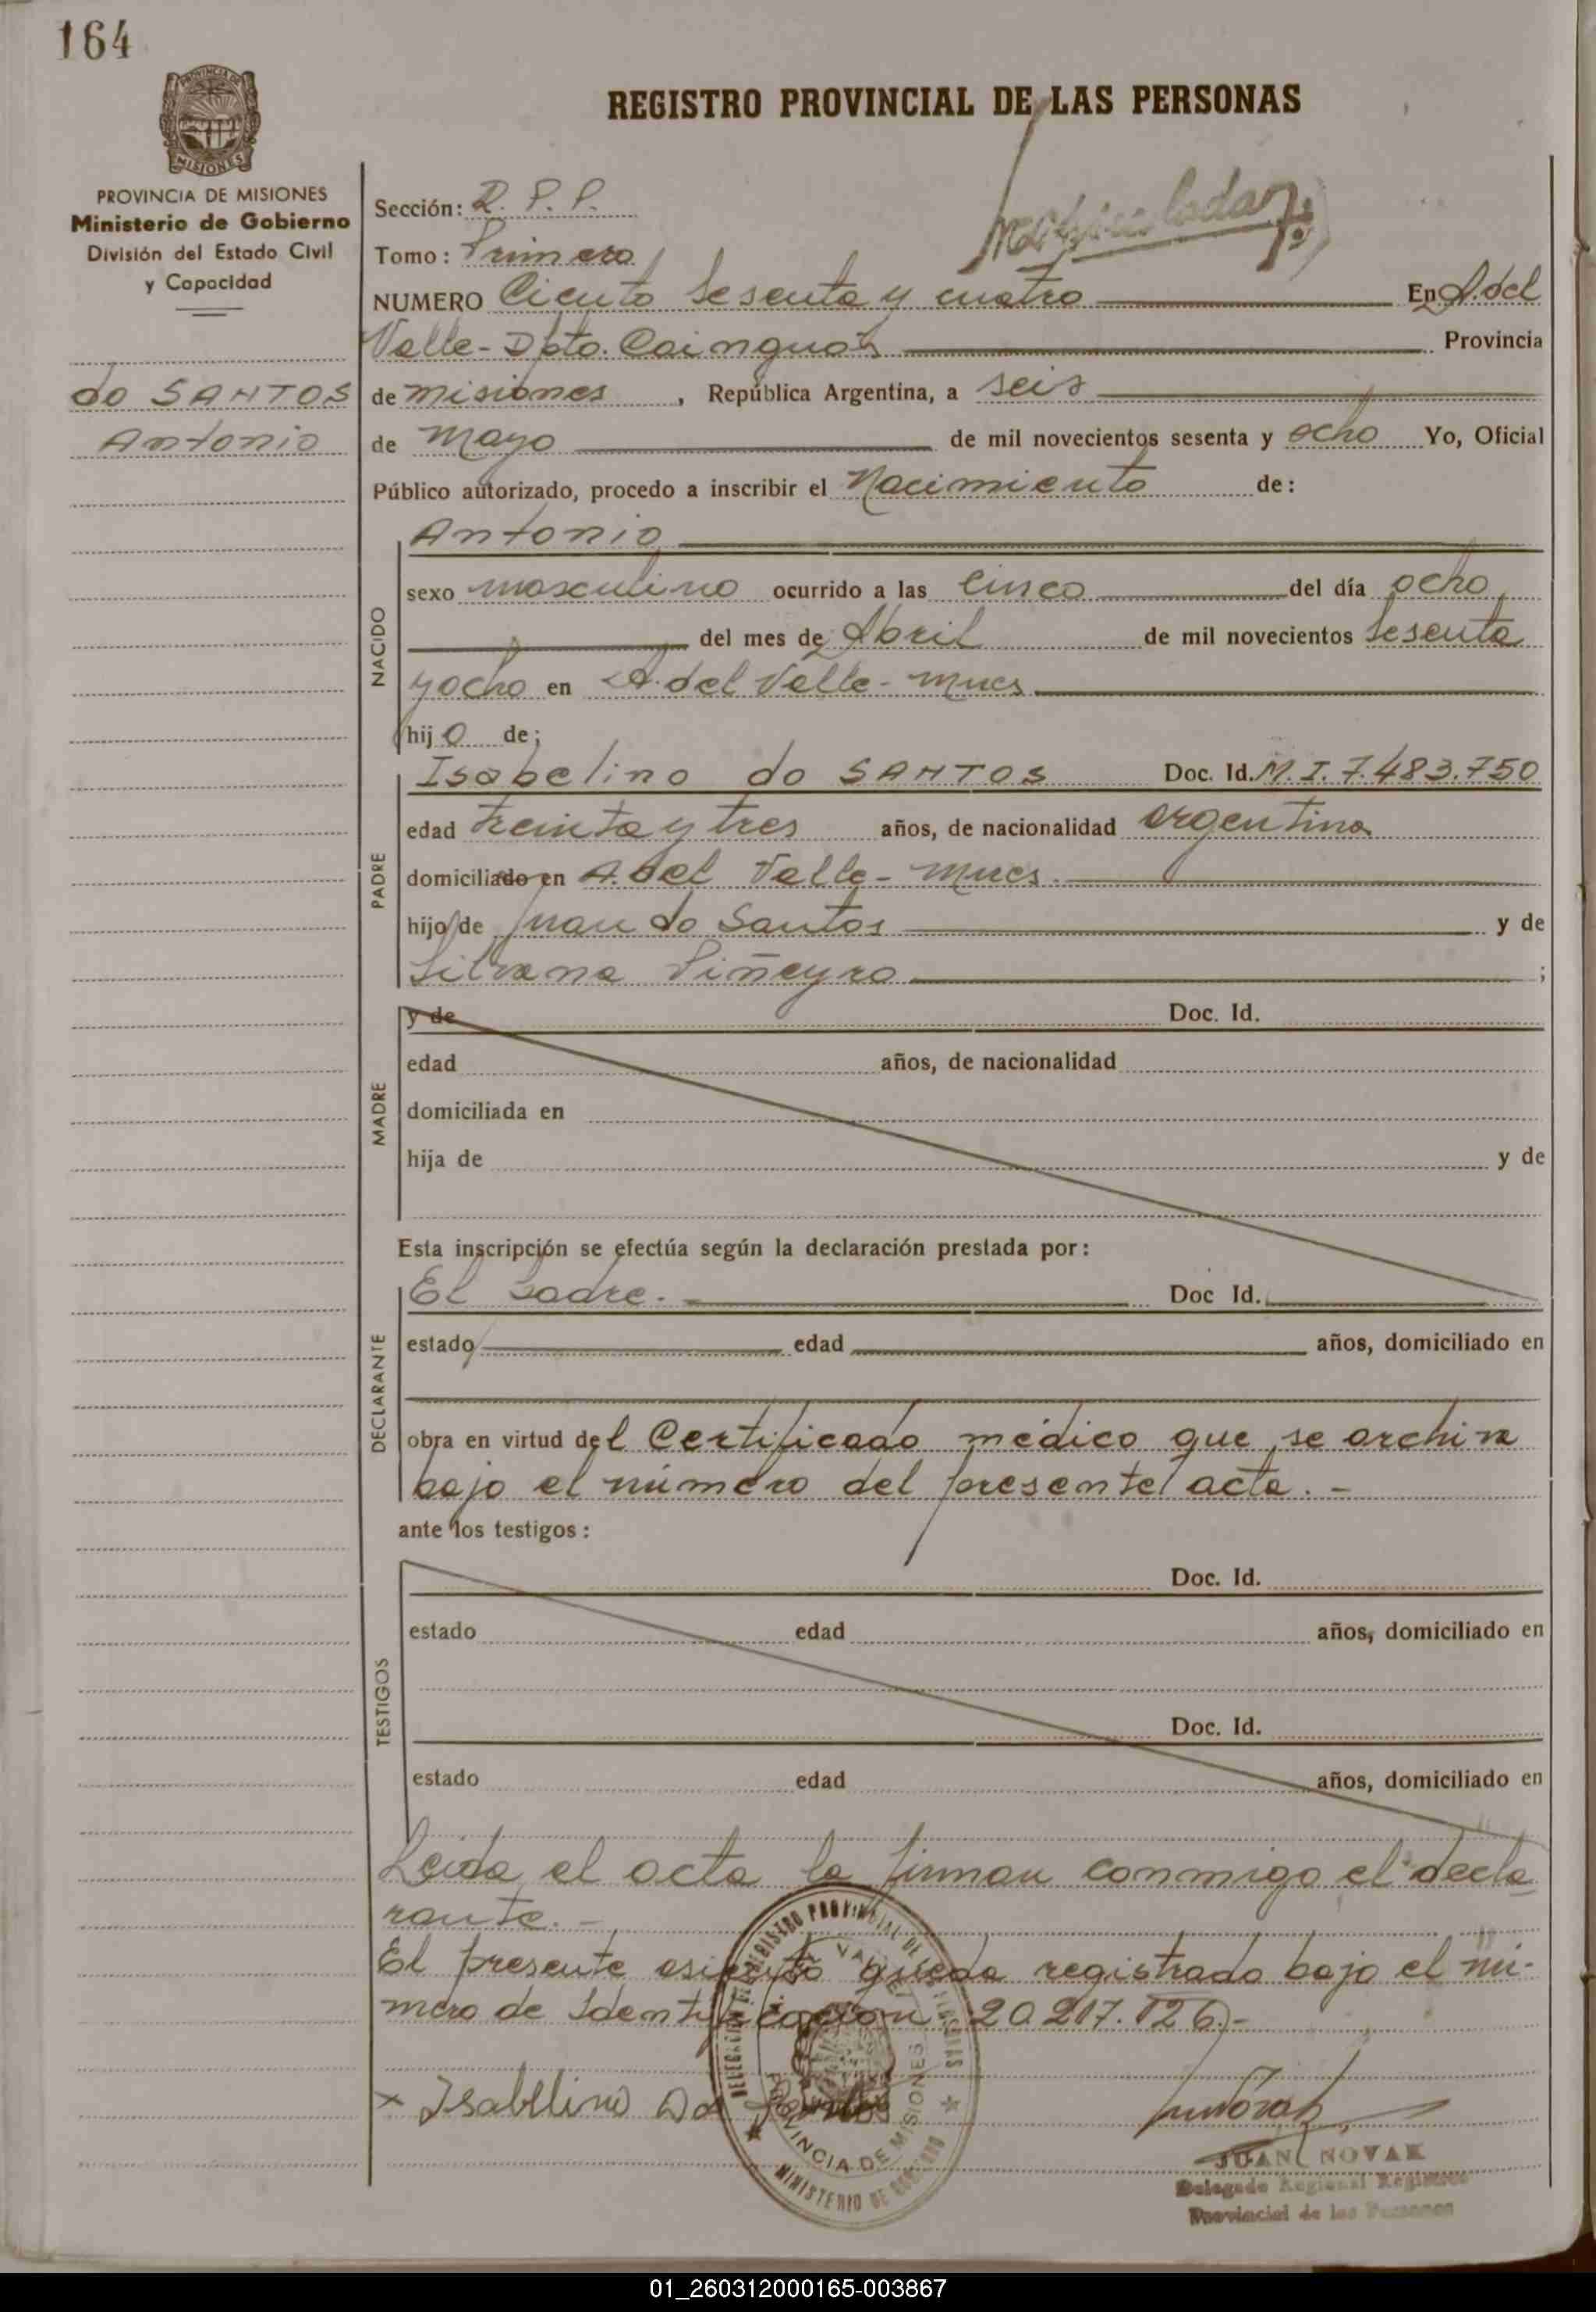 164
PROVINCIA DE MISIONES
Ministerio de Gobierno
División del Estado Civil
y Capacidad
REGISTRO PROVINCIAL DE LAS PERSONAS
Sección: R. P. P.
Tomo: Primero
NUMERO Ciento Sesenta y cuatro En A. del
Valle - Dpto. Cainguás Provincia
do SANTOS
Antonio
de misiones, República Argentina, a seis
de mayo de mil novecientos sesenta y ocho Yo, Oficial
Público autorizado, procedo a inscribir el Nacimiento de:
NACIDO
Antonio
sexo masculino ocurrido a las cinco del día ocho
del mes de Abril de mil novecientos sesenta
y ocho en A. del Valle - Mnes
hijo de;
PADRE
Isabelino do SANTOS Doc. Id. M. I. 7.483.750
edad treinta y tres años, de nacionalidad argentina
domiciliado en A. del Valle - Mnes.
hijo de Juan do Santos y de
Silvana Piñeyro ;
MADRE
y de Doc. Id.
edad años, de nacionalidad
domiciliada en
hija de y de
Esta inscripción se efectúa según la declaración prestada por:
DECLARANTE
El Padre. - Doc Id.
estado edad años, domiciliado en
obra en virtud del Certificado médico que se archiva
bajo el número del presente acta. -
ante los testigos:
TESTIGOS
Doc. Id.
estado edad años, domiciliado en
Doc. Id.
estado edad años, domiciliado en
Leída el acta la firman conmigo el decla
rante. -
El presente asiento queda registrado bajo el nú-
mero de Identificación 20.217.126.-
x Isabelino Do Santos
PROVINCIA DE MISIONES
MINISTERIO DE GOBIERNO
JUAN NOVAK
Delegado Regional Registro
Provincial de las Personas
01_260312000165-003867